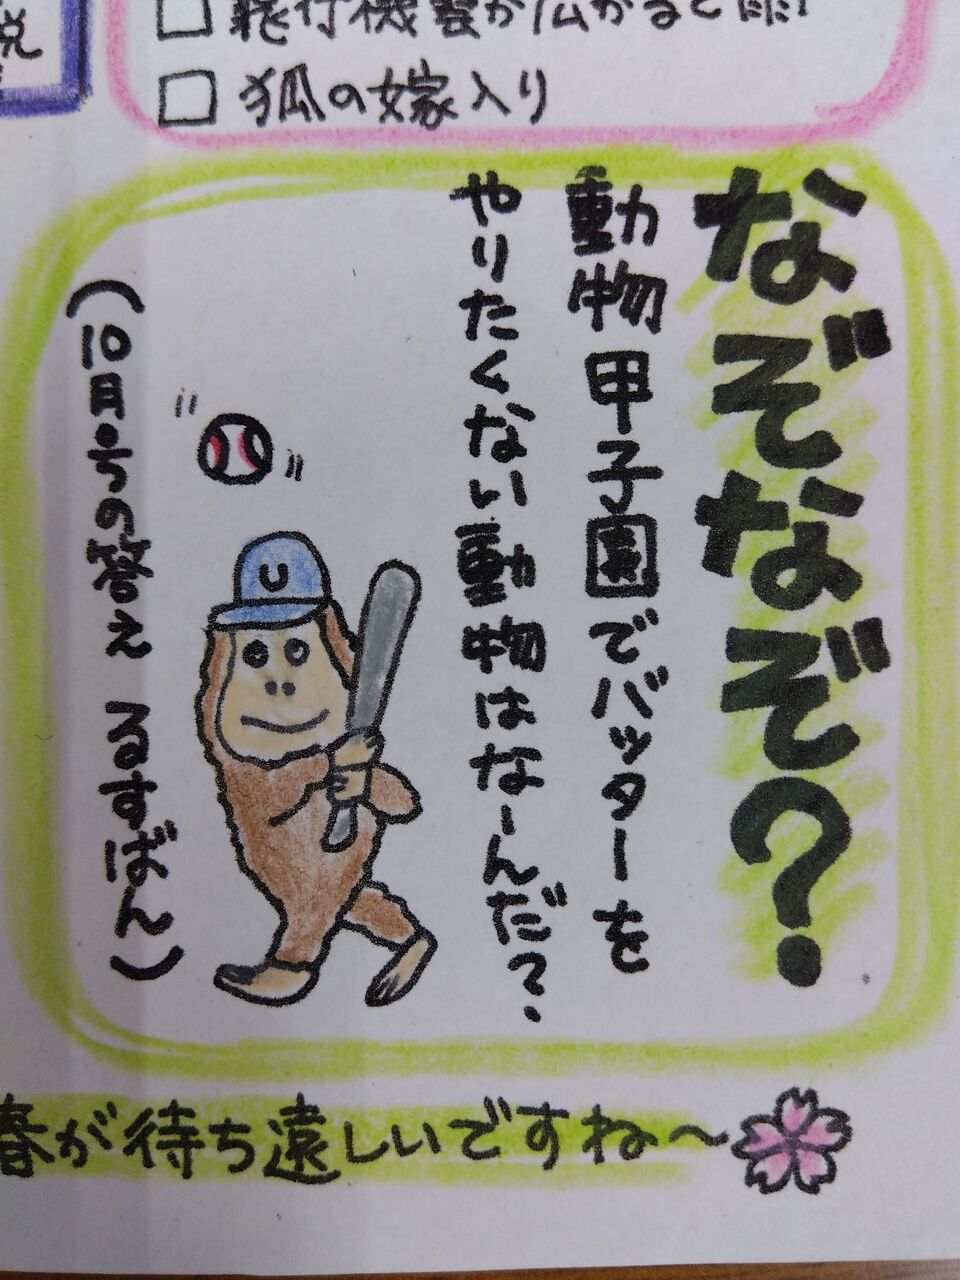 説
□ 飛行機雲が広がると雨!
□ 狐の嫁入り
なぞなぞ?
動物甲子園でバッターを
やりたくない動物はなーんだ?
U
(10月号の答え るすばん)
春が待ち遠しいですね〜